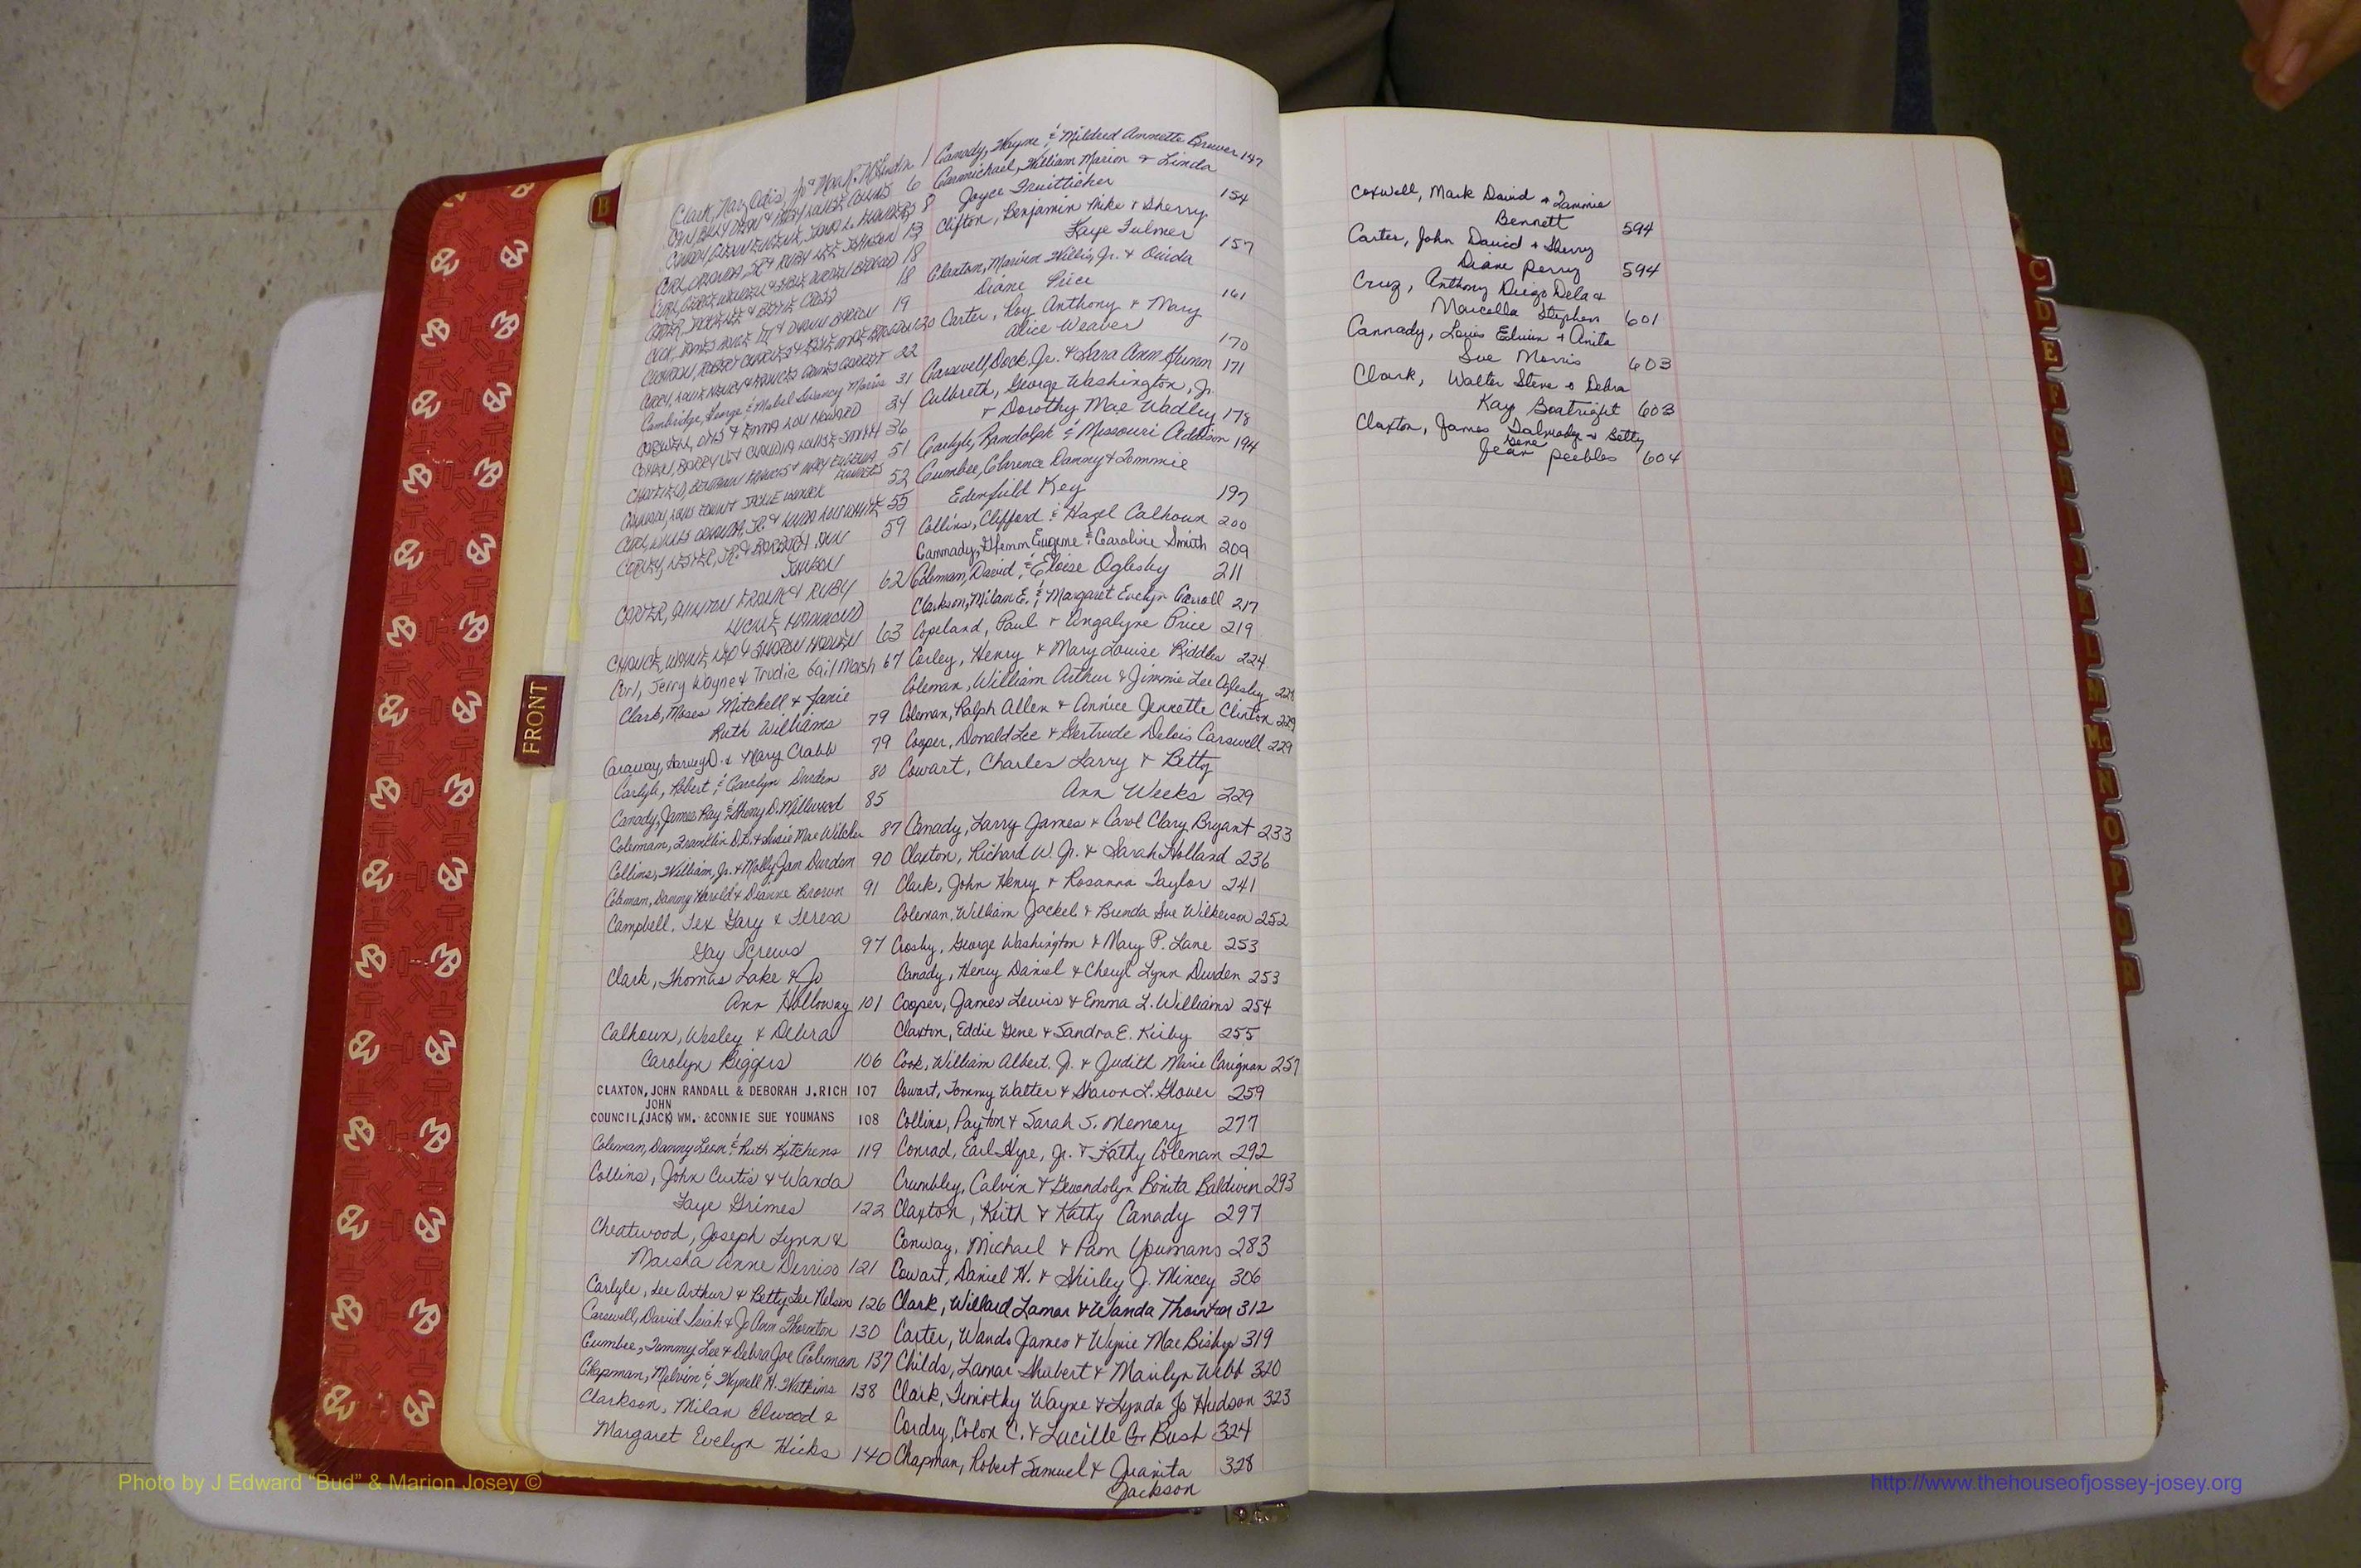 Clark, Ray Otis, Jr & 1
6
8
13
18
18
19
20
CURRY, LOUIE & FRANCES 22
Cambridge, George & Mabel Swaney Morris 31
COXWELL, OTIS & EMMA LOU HOWARD 34
COMAN, BARRY & CLAUDIA LOUISE SMITH 36
CHATFIELD, BENJAMIN FRANCIS & MARY EUGENIA 51
CANNADY, LOUIS EDWIN & JACKIE 52
CURL, JR. & LINDA LOU WHITE 55
CORLEY, LESTER, JR. & BARBARA ANN 59
JOHNSON
CARTER, FRANK & RUBY 62
LUCILE HAMMOND
CHANCE, WAYNE & SHARON 63
Curl, Jerry Wayne & Trudie Gail Marsh 67
Clark, Moses Mitchell & Janie
Ruth Williams 79
Caraway, Harvey D. & Mary Crabb 79
Carlyle, Robert & Carolyn Durden 80
Canady, James Ray & Sherry D. Millwood 85
Coleman, Franklin D. & Susie Mae Wilcher 87
Collins, William, Jr. & Molly Jan Durden 90
Coleman, Danny Harold & Dianne Brown 91
Campbell, Tex Gary & Teresa
Gay Screws 97
Clark, Thomas Lake & Jo
Ann Holloway 101
Calhoun, Wesley & Debra
Carolyn Biggers 106
CLAXTON, JOHN RANDALL & DEBORAH J. RICH 107
JOHN
COUNCIL (JACK) WM. & CONNIE SUE YOUMANS 108
Coleman, Danny Leon & Ruth Kitchens 119
Collins, John Curtis & Wanda
Faye Grimes 122
Cheatwood, Joseph Lynn &
Marsha Anne Derriso 121
Carlyle, Lee Arthur & Betty Lee Nelson 126
Carswell, David Isiah & Jo Ann Thornton 130
Cumbee, Tommy Lee & Debra Joe Coleman 137
Chapman, Melvin & Wynell H. Watkins 138
Clarkson, Milan Elwood &
Margaret Evelyn Hicks 140
Canady, Wayne & Mildred Annette Brewer 147
Carmichael, William Marion & Linda
Joyce Fruitticher 154
Clifton, Benjamin Mike & Sherry
Faye Fulmer 157
Claxton, Marion Willis, Jr. & Ouida
Diane Price 161
Carter, Roy Anthony & Mary
Alice Weaver 170
Carswell, Dock, Jr. & Sara Ann Gunn 171
Culbreth, George Washington, Jr.
& Dorothy Mae Wadley 178
Carlyle, Randolph & Missouri Addison 194
Cumbee, Clarence Danny & Tommie
Edenfield Key 197
Collins, Clifford & Hazel Calhoun 200
Cannady, Glenn Eugene & Caroline Smith 209
Coleman, David & Eloise Oglesby 211
Clarkson, Milan E. & Margaret Evelyn Carroll 217
Copeland, Paul & Angalyne Price 219
Corley, Henry & Mary Louise Riddles 224
Coleman, William Arthur & Jimmie Lee Oglesby
Coleman, Ralph Allen & Annice Jennette Clinton 229
Cooper, Donald Lee & Gertrude Delois Carswell 229
Cowart, Charles Larry & Betty
Ann Weeks 229
Canady, Larry James & Carol Clary Bryant 233
Claxton, Richard W. Jr. & Sarah Holland 236
Clark, John Henry & Rosanna Taylor 241
Coleman, William Jackel & Brenda Sue Wilkerson 252
Crosby, George Washington & Mary P. Lane 253
Canady, Henry Daniel & Cheryl Lynn Durden 253
Cooper, James Lewis & Emma L. Williams 254
Claxton, Eddie Gene & Sandra E. Kirby 255
Cook, William Albert, Jr. & Judith Marie Carignan 257
Cowart, Tommy Walter & Sharon L. Glover 259
Collins, Payton & Sarah S. Memory 277
Conrad, Earl Hye, Jr. & Kathy Coleman 292
Crumbley, Calvin & Gwendolyn Bonita Baldwin 293
Claxton, Keith & Kathy Canady 297
Conway, Michael & Pam Youmans 283
Cowart, Daniel H. & Shirley J. Mincey 306
Clark, Willard Lamar & Wanda Thornton 312
Carter, Wands James & Wynie Mae Bishop 319
Childs, Lamar Shubert & Marilyn Webb 320
Clark, Timothy Wayne & Lynda Jo Hudson 323
Cordry, Colon C. & Lucille G. Bush 324
Chapman, Robert Samuel & Juanita 328
Jackson
Coxwell, Mark David & Tammie
Bennett 594
Carter, John David & Sherry
Diane Perry 594
Cruz, Anthony Diego Dela &
Marcella Stephens 601
Cannady, Louis Edwin & Anita
Sue Morris 603
Clark, Walter Steve & Debra
Kay Boatright 603
Claxton, James Talmadge & Betty
Gene
Jean Peebles 604
B
FRONT
C
D
E
F
G
H
I
J
K
L
M
Mc
N
O
P
Q
R
Photo by J Edward “Bud” & Marion Josey ©
http://www.thehouseofjossey-josey.org